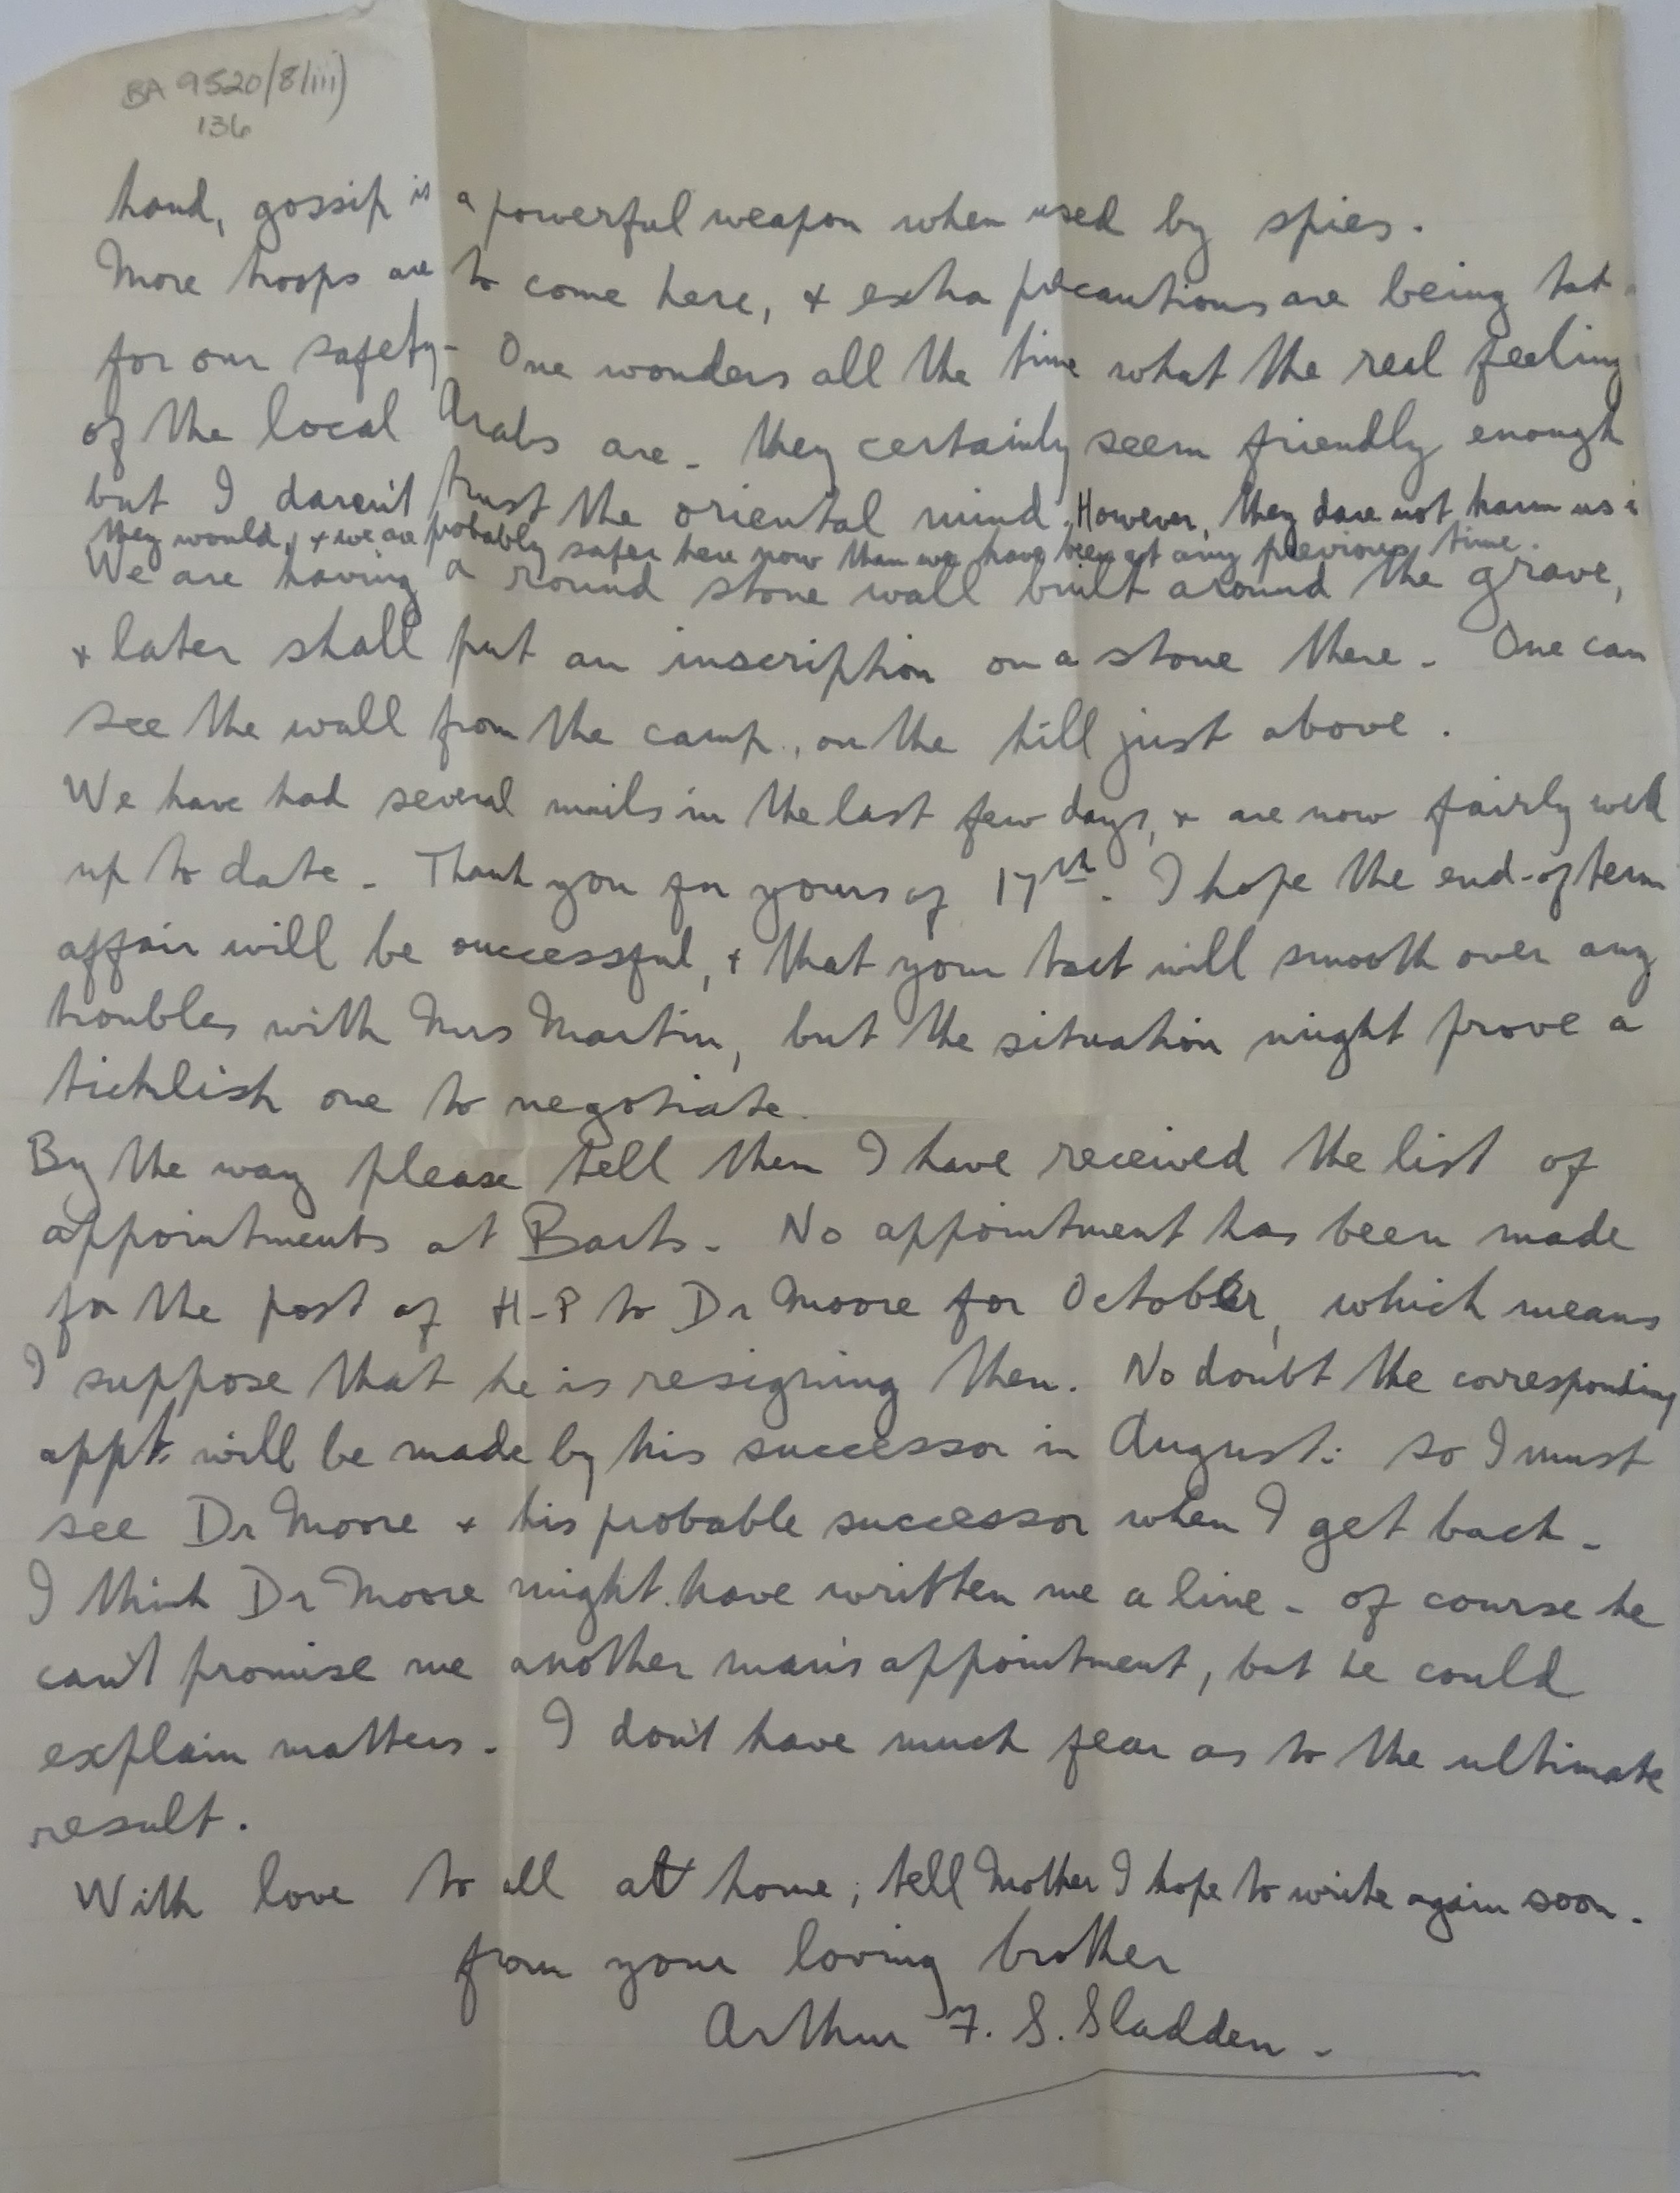 BA 9520/8/iii)
136
hand, gossip is a powerful weapon when used by spies.
More troops are to come here, + extra precautions are being
for our safety - One wonders all the time what the real feeling
of the local Arabs are - they certainly seem friendly enough
but I daren't trust the oriental mind. However, they dare not harm us i
they would, + we are probably safer here now than we have been at any previous time.
We are having a round stone wall built around the grave,
+ later shall put an inscription on a stone there - One can
see the wall from the camp, on the hill just above.
We have had several mails in the last few days, + are now fairly well
up to date - Thank you for yours of 17th. I hope the end-of term
affair will be successful, + that your tact will smooth over any
troubles with Mrs Martin, but the situation might prove a
ticklish one to negotiate.
By the way please tell them I have received the list of
appointments at Barts - No appointment has been made
for the post of H-P to Dr Moore for October, which means
I suppose that he is resigning then. No doubt the corresponding
appt. will be made by his successor in August: so I must
see Dr Moore + his probable successor when I get back -
I think Dr Moore might have written me a line - of course he
can't promise me another man's appointment, but he could
explain matters - I don't have much fear as to the ultimate
result.
With love to all at home, tell Mother I hope to write again soon -
from your loving brother
Arthur F. S. Sladden -